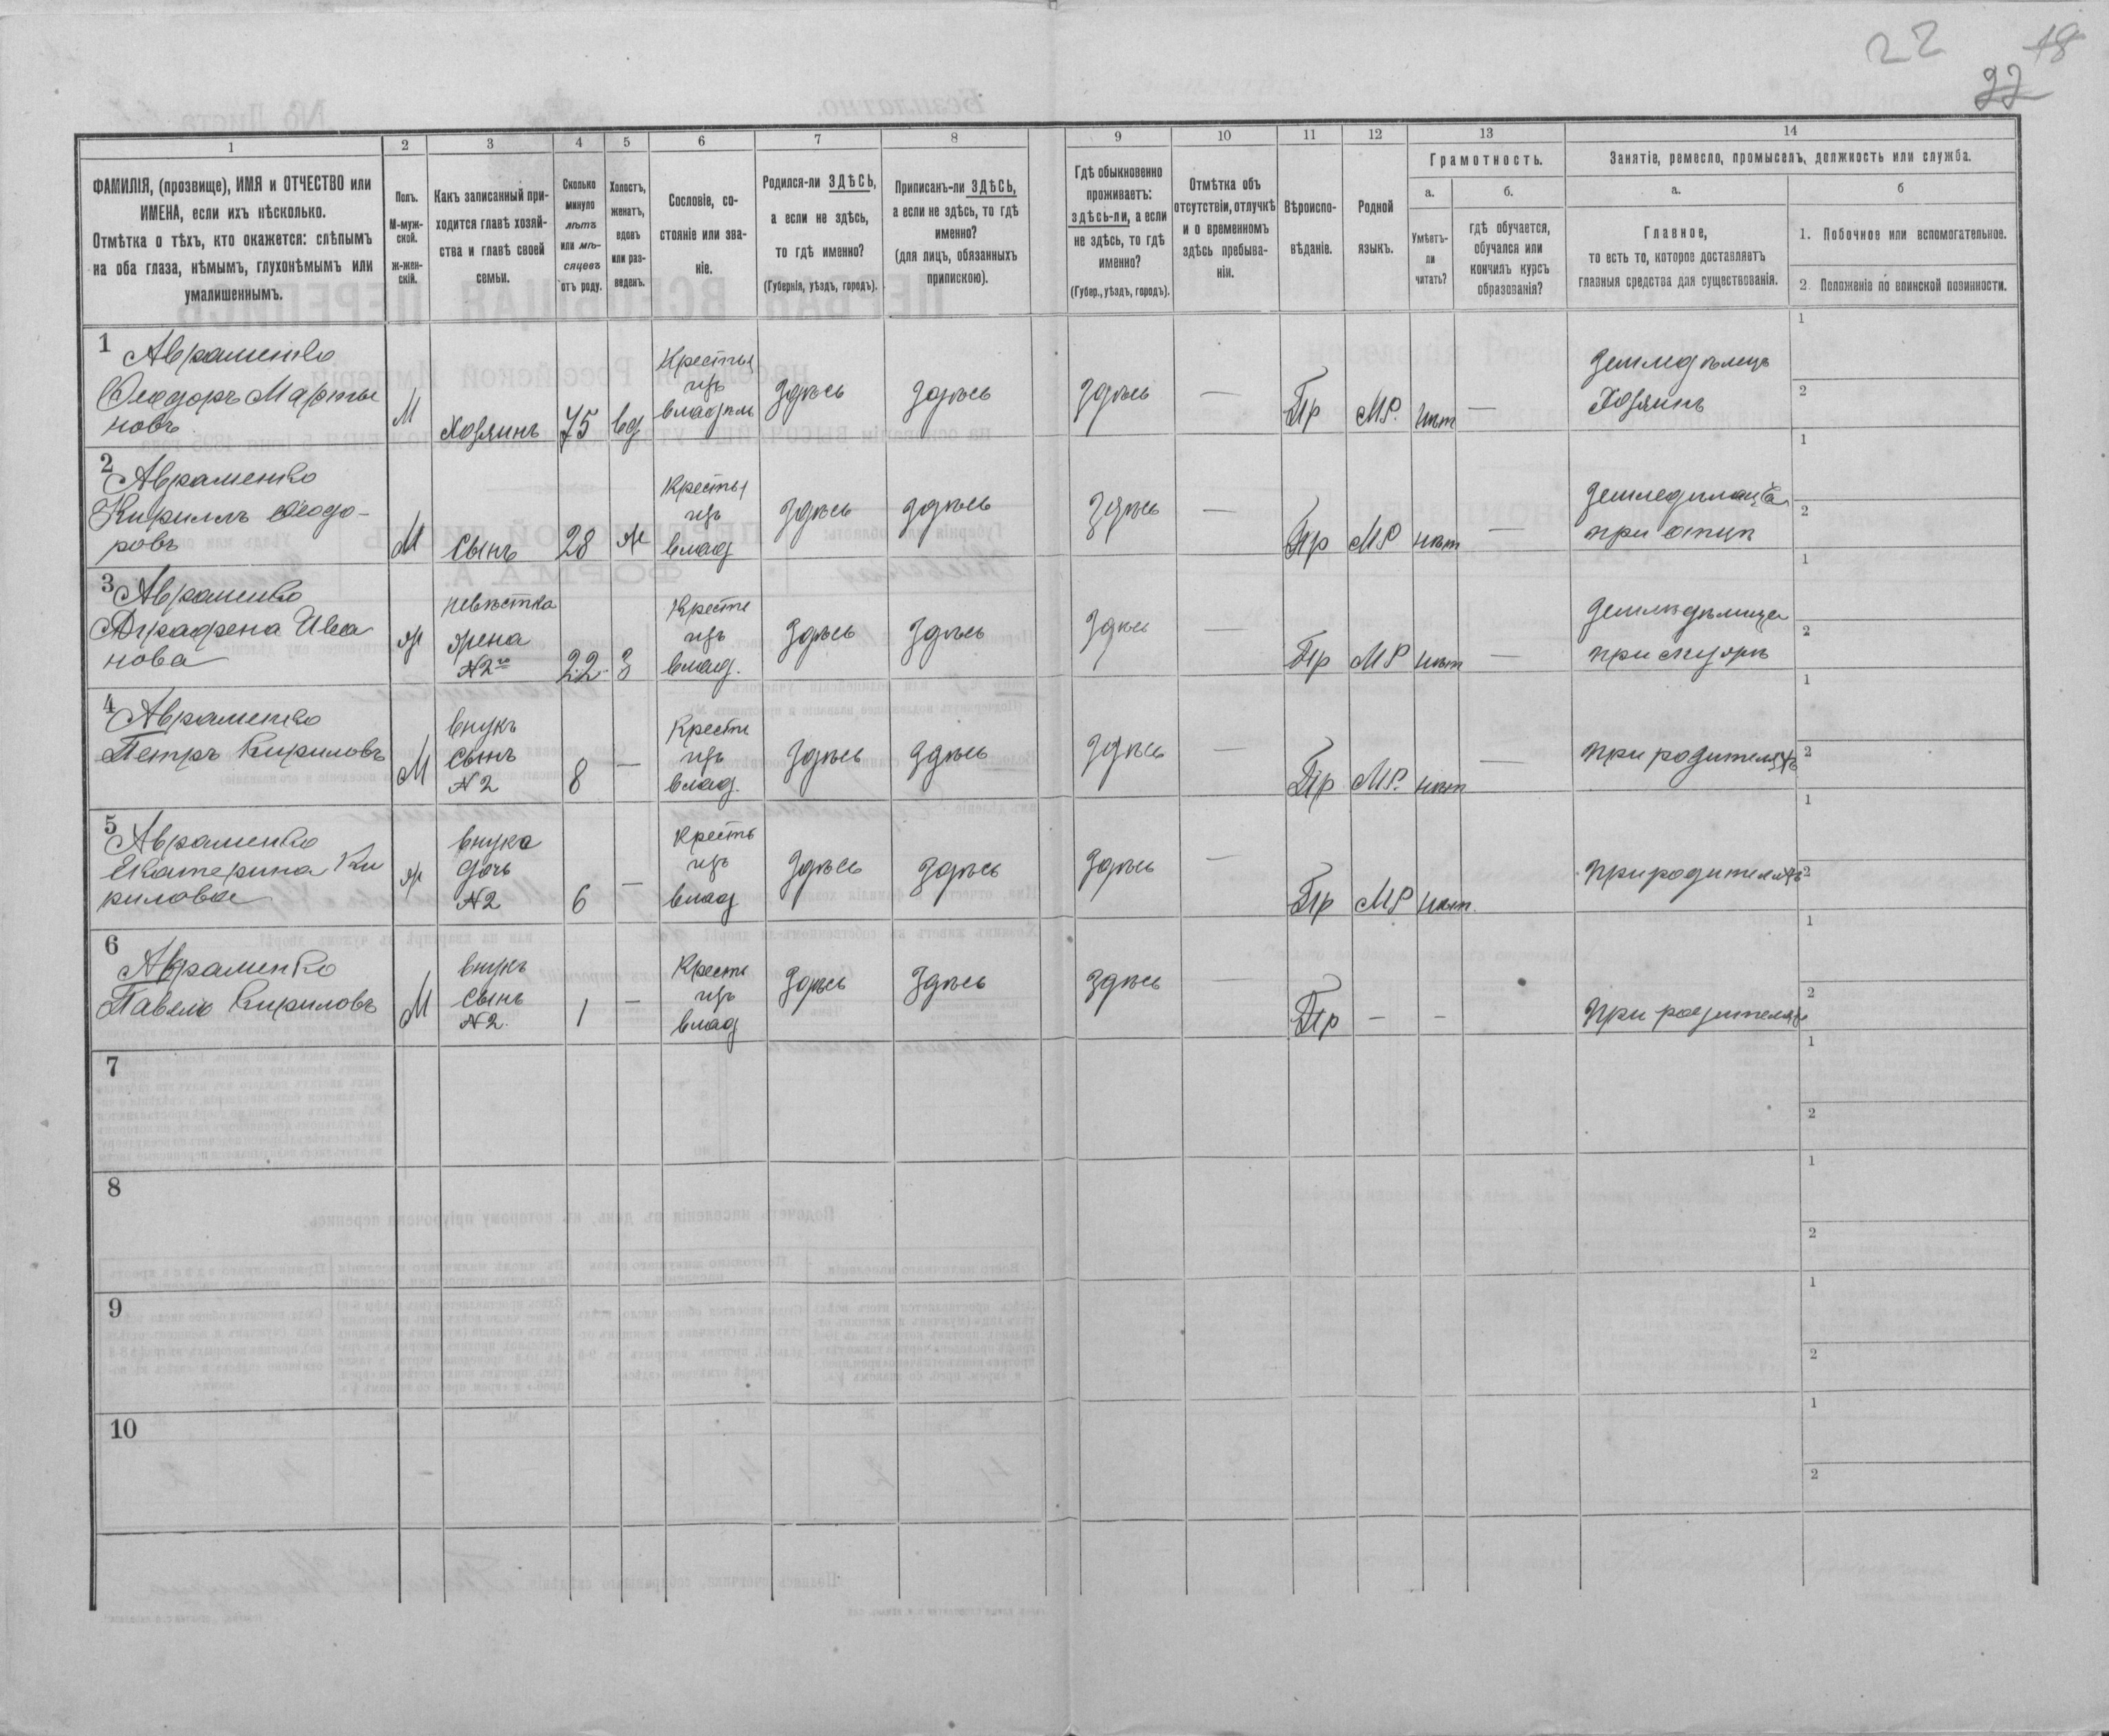 22 18
22
1 2 3 4 5 6 7 8 9 10 11 12 13 14
ФАМИЛІЯ, (прозвище), ИМЯ и ОТЧЕСТВО или
ИМЕНА, если ихъ нѣсколько.
Отмѣтка о тѣхъ, кто окажется: слѣпымъ
на оба глаза, нѣмымъ, глухонѣмымъ или
умалишеннымъ.
Полъ.
М-муж-
ской.
ж-жен-
скій.
Какъ записанный при-
ходится главѣ хозяй-
ства и главѣ своей
семьи.
Сколько
минуло
лѣтъ
или мѣ-
сяцевъ
отъ роду.
Холостъ,
женатъ,
вдовъ
или раз-
веденъ.
Сословіе, со-
стояніе или зва-
ніе.
Родился-ли ЗДѢСЬ,
а если не здѣсь,
то гдѣ именно?
(Губернія, уѣздъ, городъ).
Приписанъ-ли ЗДѢСЬ,
а если не здѣсь, то гдѣ
именно?
(для лицъ, обязанныхъ
припискою).
Гдѣ обыкновенно
проживаетъ:
здѣсь-ли, а если
не здѣсь, то гдѣ
именно?
(Губер., уѣздъ, городъ).
Отмѣтка объ
отсутствіи, отлучкѣ
и о временномъ
здѣсь пребыва-
ніи.
Вѣроиспо-
вѣданіе.
Родной
языкъ.
Грамотность.
а. б.
Умѣетъ-
ли
читать?
гдѣ обучается,
обучался или
кончилъ курсъ
образованія?
Занятіе, ремесло, промыселъ, должность или служба.
а. б
Главное,
то есть то, которое доставляетъ
главныя средства для существованія.
1. Побочное или вспомогательное.
2. Положеніе по воинской повинности.
1
Авраменко
Феодоръ Марты
новъ
М
Хозяинъ
75
вд
Крестья
изъ
владѣль
Здѣсь
Здѣсь
Здѣсь
—
Пр
МР.
нѣт
—
Земледѣлецъ
Хозяинъ
1
2
2
Авраменко
Кириллъ Феодо-
ровъ
М
Сынъ
28
ж
Крестья
изъ
влад
Здѣсь
Здѣсь
Здѣсь
—
Пр
МР
нѣт
—
при отцѣ
1
2
3
Авраменко
Аграфена Ива
нова
ж
невѣстка
жена
№2го
22.
З
Кресть
изъ
влад.
Здѣсь
Здѣсь
Здѣсь
—
Пр
МР
нѣт
—
Земледѣлица
при мужѣ
1
2
4
Авраменко
Петръ Кириловъ
М
внукъ
сынъ
№2
8
—
Кресть
изъ
влад.
Здѣсь
Здѣсь
Здѣсь
—
Пр
МР.
нѣт
—
при родителяхъ
1
2
5
Авраменко
Екатерина Ки
рилова
ж
внука
дочь
№2
6
—
Кресть
изъ
влад
Здѣсь
Здѣсь
Здѣсь
—
Пр
МР
нѣт.
при родителяхъ
1
2
6
Авраменко
Павелъ Кириловъ
М
внукъ
сынъ
№2.
1
—
Кресть
изъ
влад
Здѣсь
Здѣсь
Здѣсь
—
Пр
—
—
при родителях
1
2
7
1
2
8
1
2
9
1
2
10
1
2